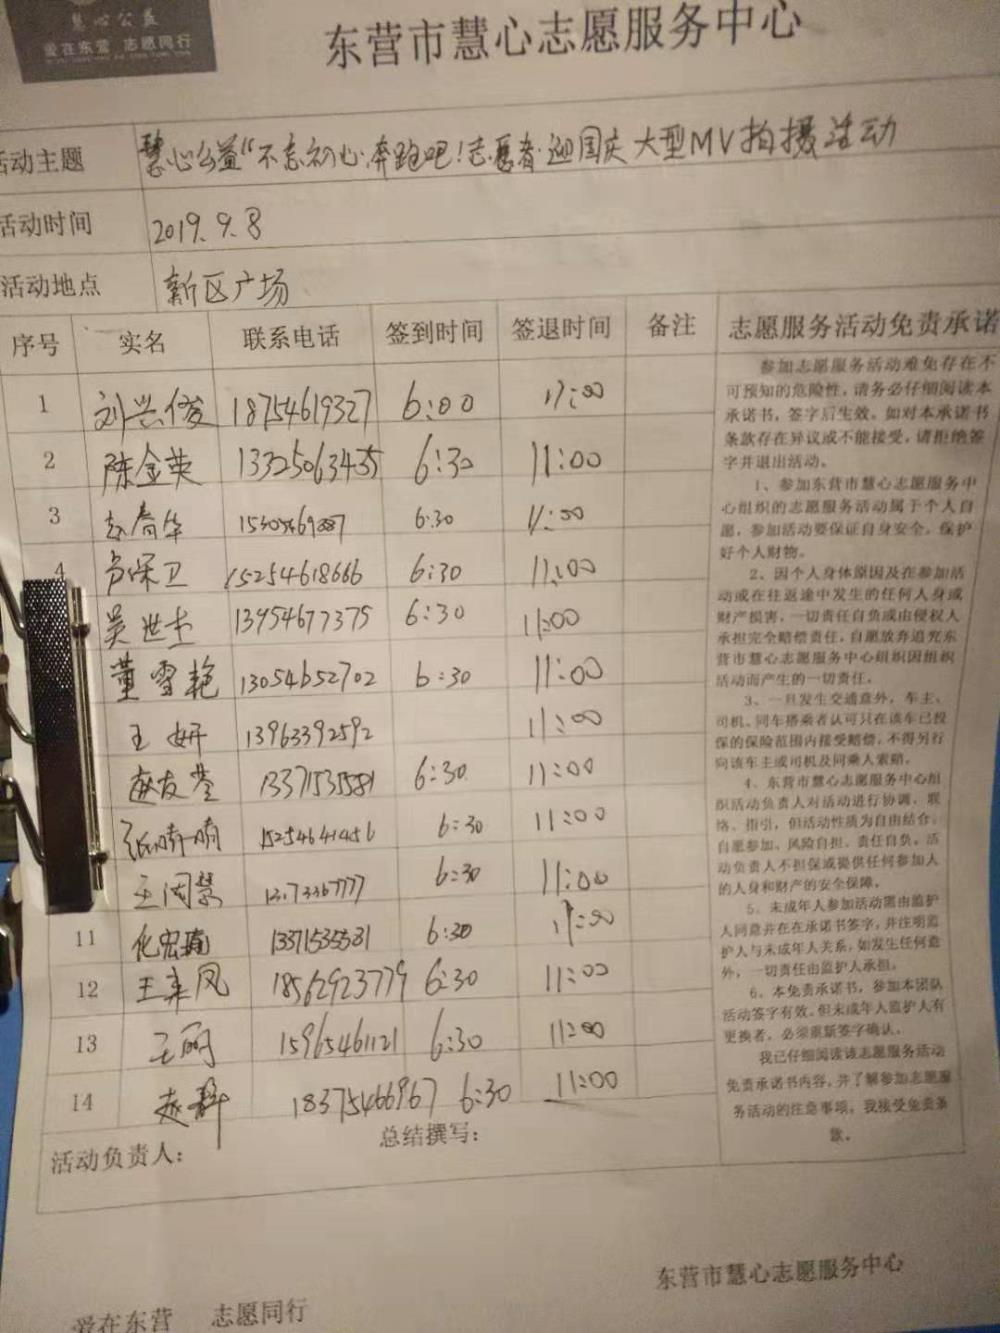 慧心公益
爱在东营 志愿同行
东营市慧心志愿服务中心
活动主题 慧心公益“不忘初心 奔跑吧！志愿者 迎国庆大型MV拍摄活动
活动时间 2019.9.8
活动地点 新区广场
序号 实名 联系电话 签到时间 签退时间 备注 志愿服务活动免责承诺
1 刘兴俊 18754619327 6:00 11:00
2 陈金英 13325063435 6:30 11:00
3 赵春华 6:30 11:00
4 卢保卫 15254618666 6:30 11:00
吴世杰 13954677375 6:30 11:00
董雪艳 13054652702 6:30 11:00
王妍 13963392592 11:00
赵友苓 13371535581 6:30 11:00
张晴晴 15254641456 6:30 11:00
王闰慧 6:30 11:00
11 化宏瑜 13371535531 6:30 11:00
12 王来凤 18562923779 6:30 11:00
13 王丽 15965461121 6:30 11:00
14 赵静 18375466967 6:30 11:00
参加志愿服务活动难免存在不
可预知的危险性，请务必仔细阅读本
承诺书，签字后生效。如对本承诺书
条款存在异议或不能接受，请拒绝签
字并退出活动。
1、参加东营市慧心志愿服务中
心组织的志愿服务活动属于个人自
愿，参加活动要保证自身安全，保护
好个人财物。
2、因个人身体原因及在参加活
动或在往返途中发生的任何人身或
财产损害，一切责任自负或由侵权人
承担完全赔偿责任，自愿放弃追究东
营市慧心志愿服务中心组织因组织
活动而产生的一切责任。
3、一旦发生交通意外，车主、
司机、同车搭乘者认可只在该车已投
保的保险范围内接受赔偿，不得另行
向该车主或司机及同乘人索赔。
4、东营市慧心志愿服务中心组
织活动负责人对活动进行协调、联
络、指引，但活动性质为自由结合，
自愿参加、风险自担、责任自负。活
动负责人不担保或提供任何参加人
的人身和财产的安全保障。
5、未成年人参加活动需由监护
人同意并在在承诺书签字，并注明监
护人与未成年人关系，如发生任何意
外，一切责任由监护人承担。
6、本免责承诺书，参加本团队
活动签字有效，但未成年人监护人有
更换者，必须重新签字确认。
我已仔细阅读该志愿服务活动
免责承诺书内容，并了解参加志愿服
务活动的注意事项，我接受免责条
款。
活动负责人： 总结撰写：
东营市慧心志愿服务中心
爱在东营 志愿同行